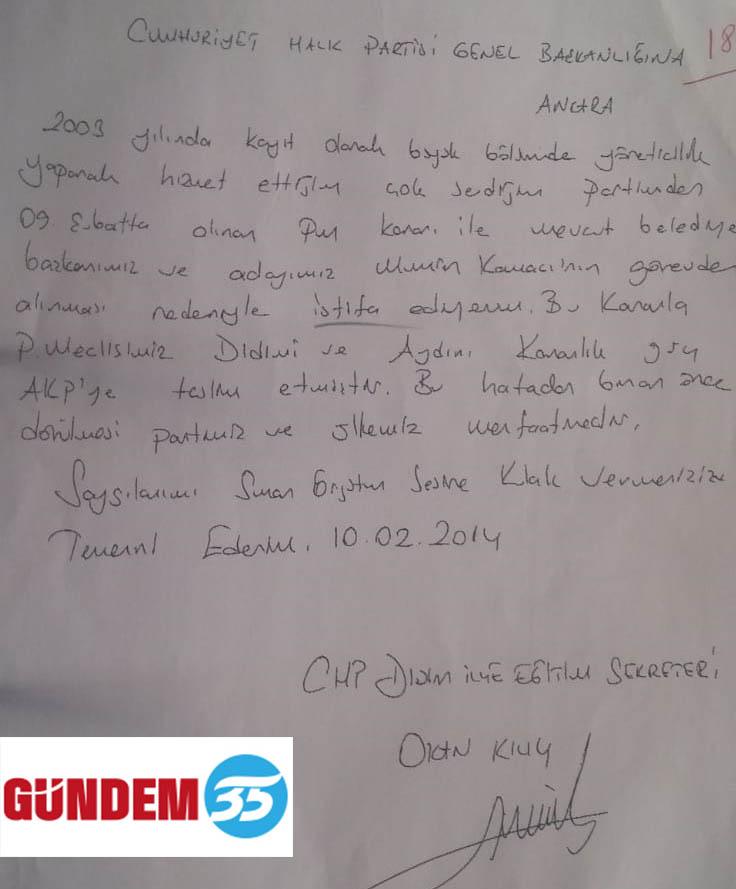 CUMHURİYET HALK PARTİSİ GENEL BAŞKANLIĞINA
18
ANKARA
2003 yılında kayıt olarak büyük bölümünde yöneticilik
yaparak hizmet ettiğim çok sevdiğim partimden
09 Şubatta alınan PM kararı ile mevcut belediye
başkanımız ve adayımız Mümin Kamacı'nın görevden
alınması nedeniyle istifa ediyorum. Bu Kararla
P. Meclisimiz Didimi ve Aydını Karanlık
AKP'ye teslim etmiştir. Bu hatadan biran önce
dönülmesi partimiz ve ülkemiz menfaatinedir.
Saygılarımı Sunar Örgütün Sesine Kulak Vermenizi
Temenni Ederim. 10.02.2014
CHP DİDİM İLÇE EĞİTİM SEKRETERİ
OKAN KILIÇ
GÜNDEM 35